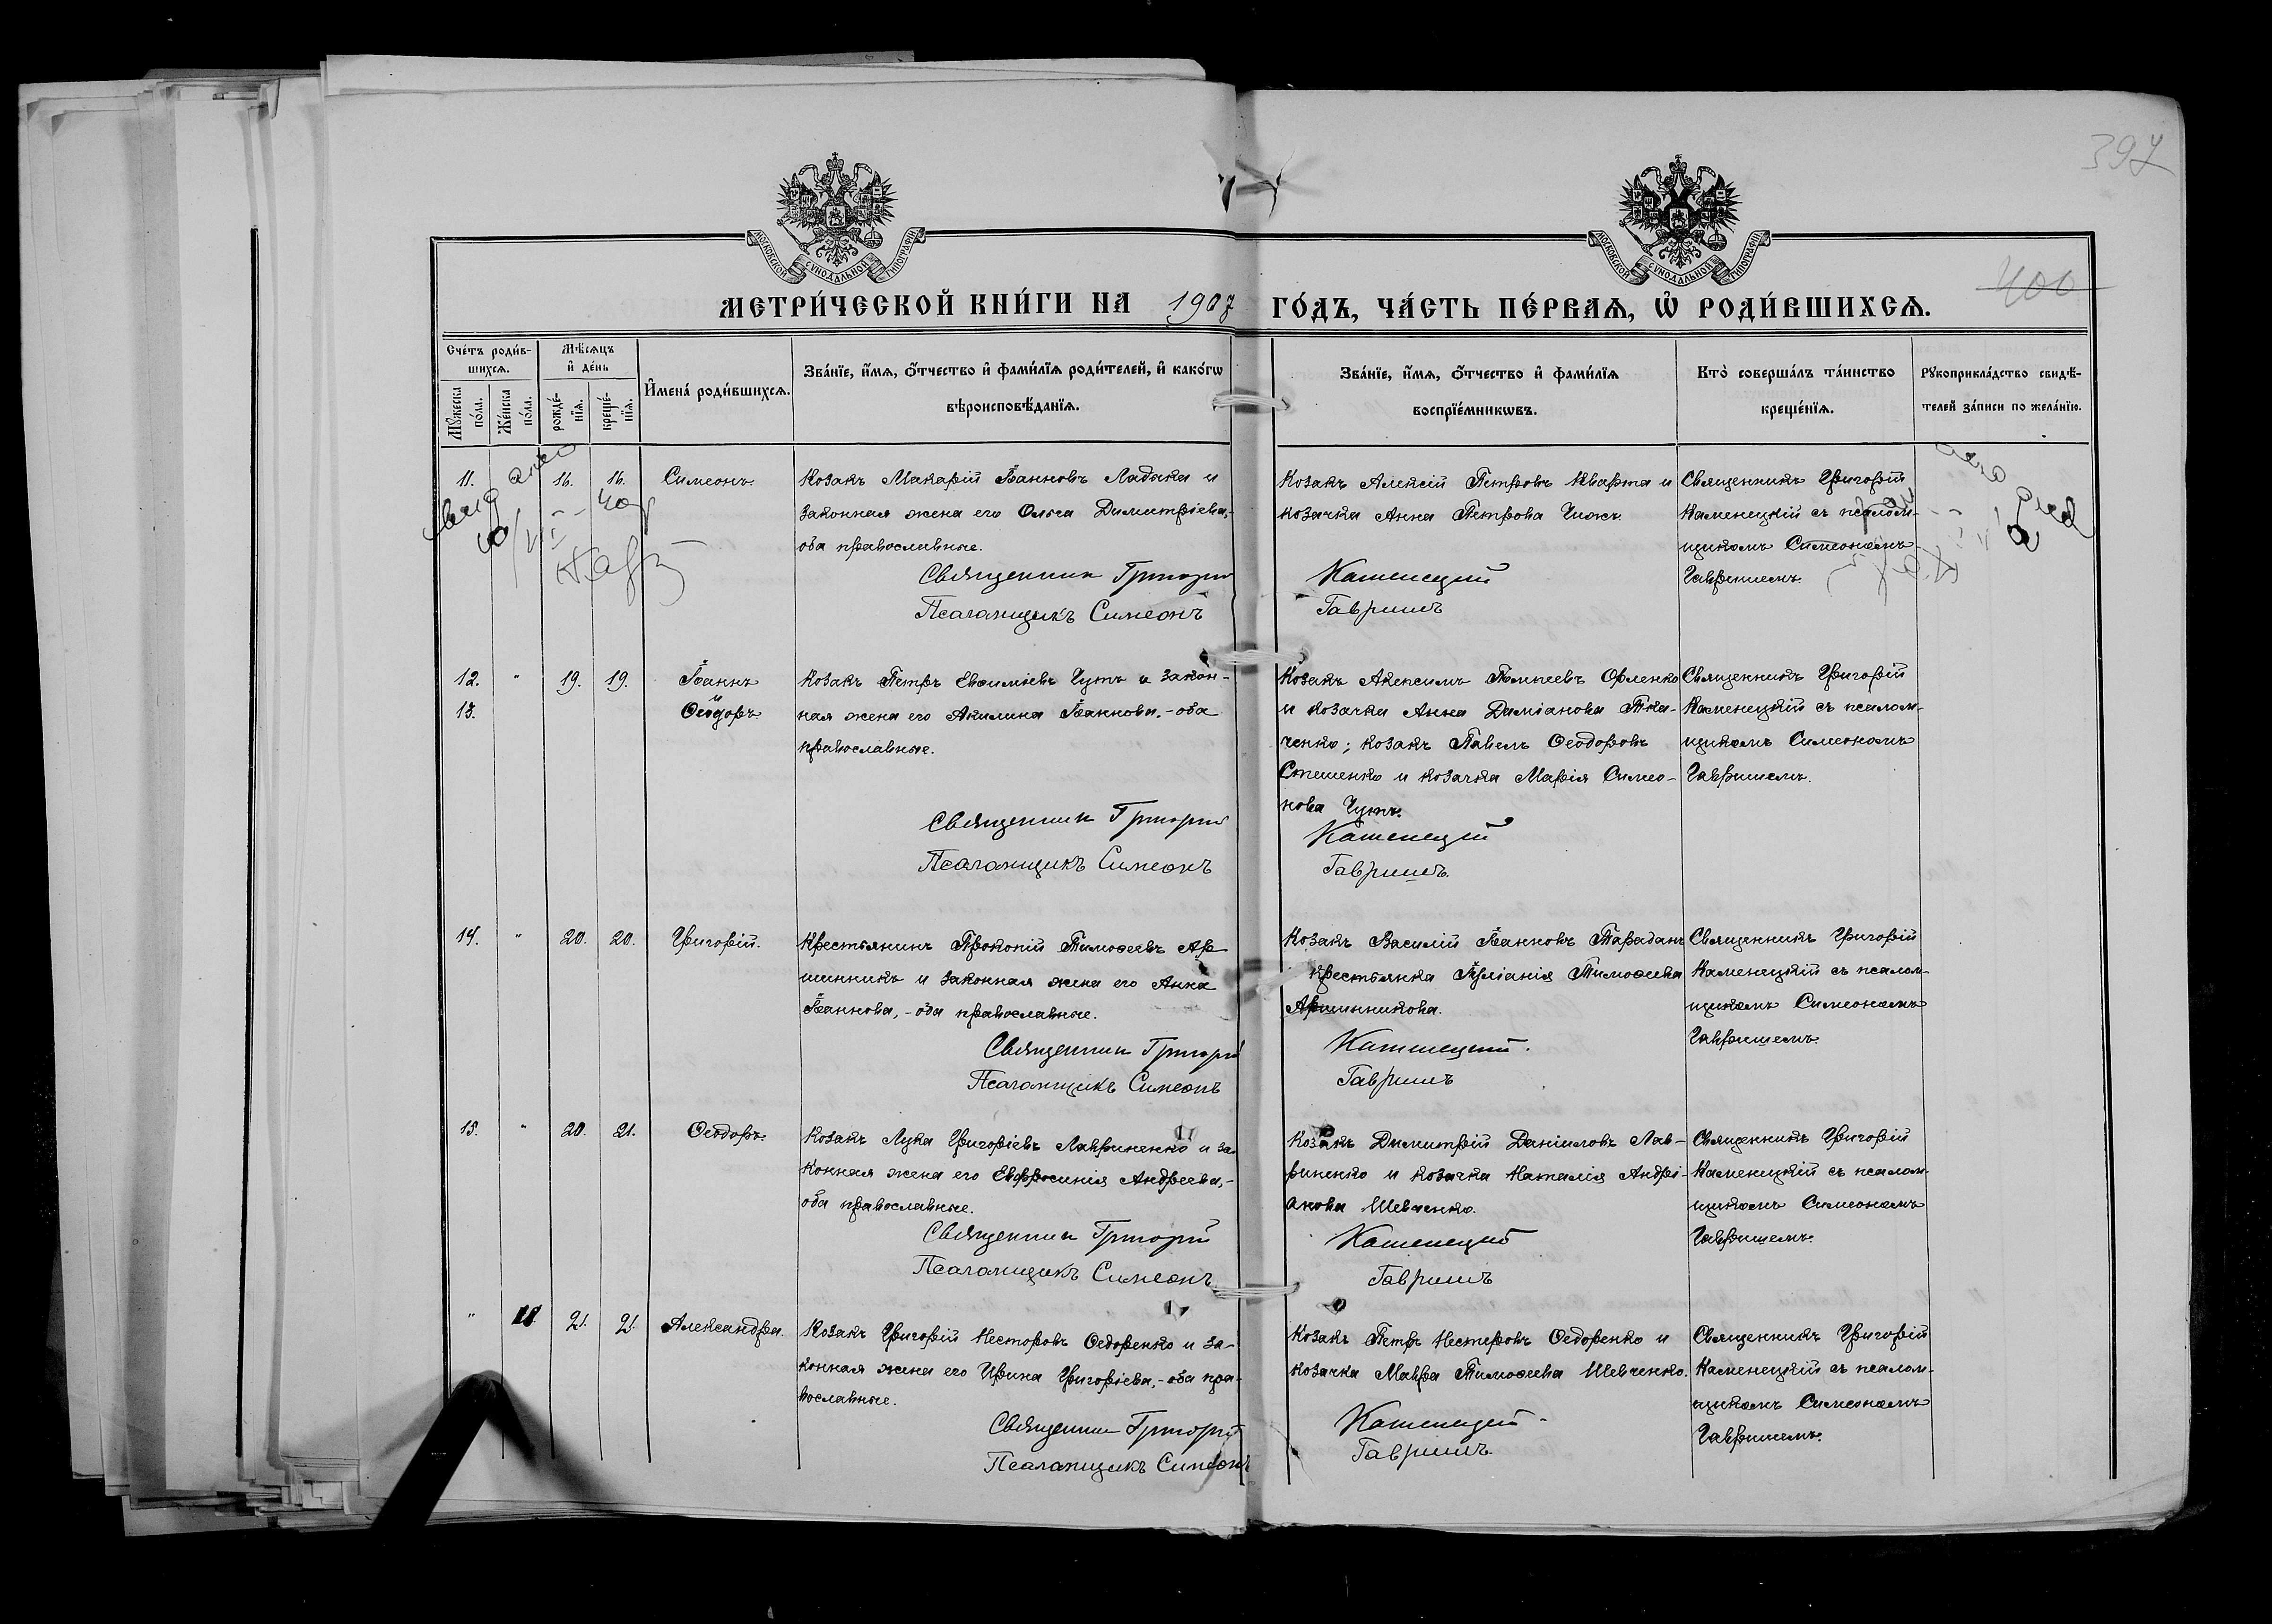 397
МОСКОВСКОЙ СѴНОДАЛЬНОЙ ТИПОГРАФІИ
МОСКОВСКОЙ СѴНОДАЛЬНОЙ ТИПОГРАФІИ
400
МЕТРИ́ЧЕСКОЙ КНИ́ГИ НА 1907 ГО́ДЪ, ЧА́СТЬ ПЕ́РВАѦ, Ѡ҆ РОДИ́ВШИХСѦ.
Сче́тъ роди́в-
шихсѧ.
Мꙋжеска по́ла.
Же́нска по́ла.
Мѣ́сѧцъ
и҆ де́нь
рожде́-
нїѧ.
креще́-
нїѧ.
И҆мена̀ роди́вшихсѧ.
Зва́нїе, и҆́мѧ, ѻ҆́тчество и҆ фами́лїѧ роди́телей, и҆ како́гѡ
вѣроисповѣ́данїѧ.
Зва́нїе, и҆́мѧ, ѻ҆́тчество и҆ фами́лїѧ
воспрїе́мникѡвъ.
Кто̀ соверша́лъ та́инство
креще́нїѧ.
Рꙋкоприкла́дство свидѣ́-
телей за́писи по жела́нїю.
11. 16. 16. Симеонъ.
Козакъ Макарій Іоанновъ Ладыка и
законная жена его Ольга Димитріева,-
оба православные.
Священник Григорий
Псаломщикъ Симеонъ
Козакъ Алексій Петровъ Кварта и
козачка Анна Петрова Чижъ.
Каменецкий
Гавришъ
Священникъ Григорій
Каменецкій съ псалом-
щикомъ Симеономъ
Гавришемъ.
12. " 19. 19. Іоаннъ
и
13. Ѳеодоръ
Козакъ Петръ Евѳиміевъ Чутъ и закон-
ная жена его Акилина Іоаннова,-оба
православные.
Священник Григорий
Псаломщикъ Симеонъ
Козакъ Анексимъ Помпеевъ Орленко
и козачка Анна Даміанова Тка-
ченко; козакъ Павелъ Ѳеодоровъ
Стешенко и козачка Марія Симео-
нова Чутъ.
Каменецкий
Гавришъ.
Священникъ Григорій
Каменецкій съ псалом-
щикомъ Симеономъ
Гавришемъ.
14. " 20. 20. Григорій.
Крестьянинъ Прокопій Тимоѳеевъ Ар-
шинникъ и законная жена его Анна
Іоаннова,-оба православные.
Священник Григорий
Псаломщикъ Симеонъ
Козакъ Василій Іоанновъ Тараданъ
крестьянка Іуліанія Тимоѳеева
Аршинникова.
Каменецкий.
Гавришъ
Священникъ Григорій
Каменецкій съ псалом-
щикомъ Симеономъ
Гавришемъ.
15. " 20. 21. Ѳеодоръ.
Козакъ Лука Григоріевъ Лавриненко и за-
конная жена его Евфросинія Андреева,-
оба православные.
Священник Григорий
Псаломщикъ Симеонъ
Козакъ Димитрій Даніиловъ Лав-
риненко и козачка Наталія Андрі-
анова Шевченко.
Каменецкий
Гавришъ
Священникъ Григорій
Каменецкій съ псалом-
щикомъ Симеономъ
Гавришемъ.
" 11 21. 21. Александра.
Козакъ Григорій Несторовъ Ѳедоренко и за-
конная жена его Ирина Григоріева,-оба пра-
вославные.
Священник Григорий
Псаломщикъ Симеонъ
Козакъ Петръ Нестеровъ Ѳедоренко и
козачка Мавра Тимоѳеева Шевченко.
Каменецкий
Гавришъ.
Священникъ Григорій
Каменецкій съ псалом-
щикомъ Симеономъ
Гавришемъ.